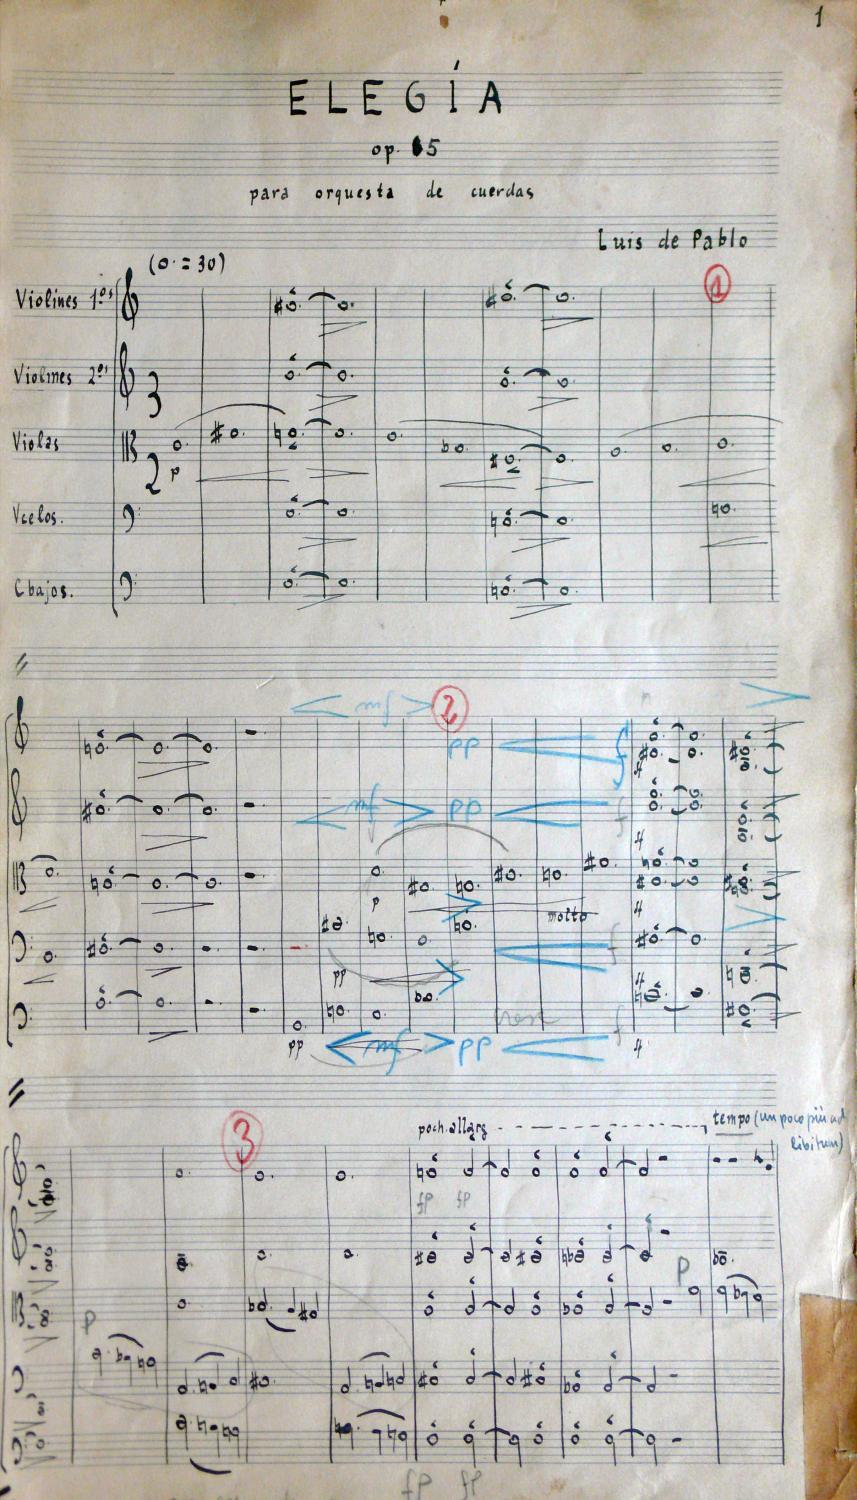 1
ELEGÍA
op. 5
para orquesta de cuerdas
Luis de Pablo
(o. = 30)
Violines 1ºs
Violines 2ºs
Violas
Vcelos.
C bajos.
3
2
p
1
mf
2
pp
mf
pp
f
p
molto
f
pp
pp
mf
pp
f
3
poch. allarg
tempo (un poco più ad
libitum)
ff ff
p
p
ff ff